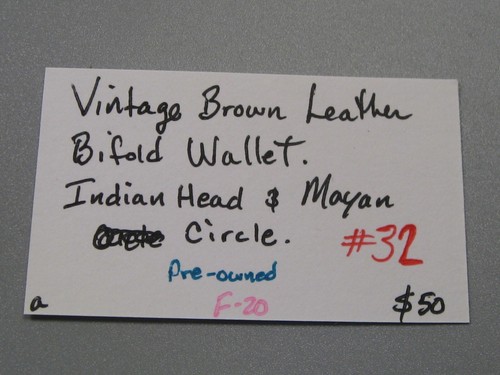 Vintage Brown Leather
Bifold Wallet.
Indian Head & Mayan
Circle.
#32
Pre-owned
F-20
a
$50